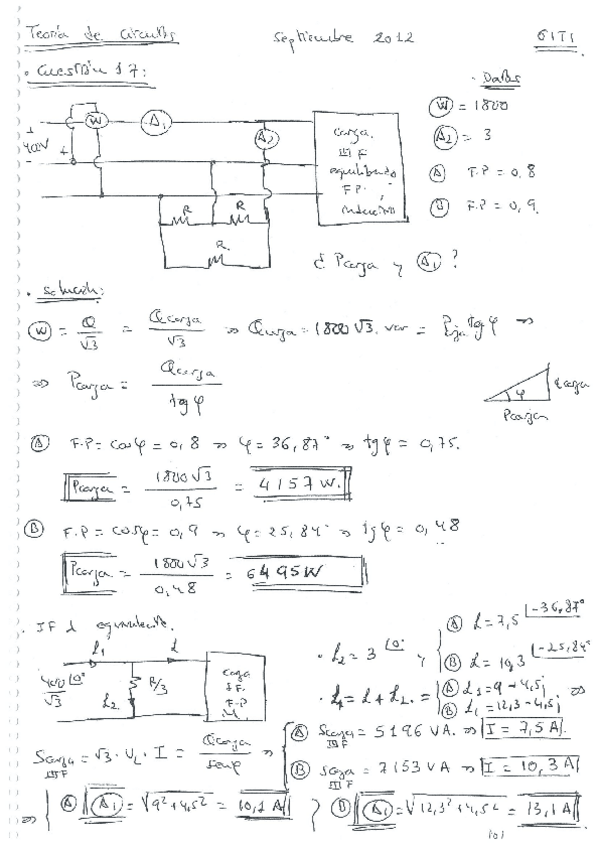 Teoría de Circuitos Septiembre 2012 GITI
• Cuestión 17:
• Datos
W = 1800
A2 = 3
A F.P = 0,8
B F.P = 0,9.
+
400V
W
A1
A2
Carga
III F
equilibrada
F.P.
inductivo
R
R
R
¿ Pcarga y A1 ?
• Solución:
W = Q/√3 = Qcarga/√3 ⇒ Qcarga = 1800√3 var = Pcarga tg φ ⇒
⇒ Pcarga = Qcarga / tg φ
φ
Qcarga
Pcarga
A F.P = cos φ = 0,8 ⇒ φ = 36,87° ⇒ tg φ = 0,75.
Pcarga = 1800√3 / 0,75 = 4157 W.
B F.P = cos φ = 0,9 ⇒ φ = 25,84° ⇒ tg φ = 0,48
Pcarga = 1800√3 / 0,48 = 6495 W
• equivalente.
400/√3 |0°
I1
I
R/3
I2
• I2 = 3 |0° y
A I = 7,5 |-36,87°
B I = 10,3 |-25,84°
• I1 = I + I2 =
A I1 = 9 - 4,5j
B I1 = 12,3 - 4,5j
⇒
Scarga = √3 · UL · I = Qcarga / sen φ ⇒
III F
A Scarga = 5196 VA. ⇒ I = 7,5 A.
III F
B Scarga = 7153 VA ⇒ I = 10,3 A
III F
⇒ A A1 = √9² + 4,5² = 10,1 A
B A1 = √12,3² + 4,5² = 13,1 A